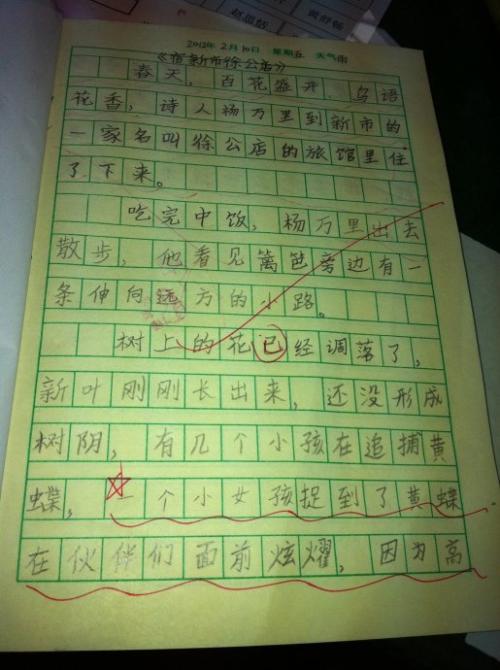 赵思恬 黄舒畅
2012年 2月10日 星期五 天气雨
《宿新市徐公店》
春天，百花盛开，鸟语
花香，诗人杨万里到新市的
一家名叫徐公店的旅馆里住
了下来。
吃完中饭，杨万里出去
散步，他看见篱笆旁边有一
条伸向远方的小路。
树上的花已经调落了，
新叶刚刚长出来，还没形成
树阴，有几个小孩在追捕黄
蝶，一个小女孩捉到了黄蝶
在伙伴们面前炫耀，因为高